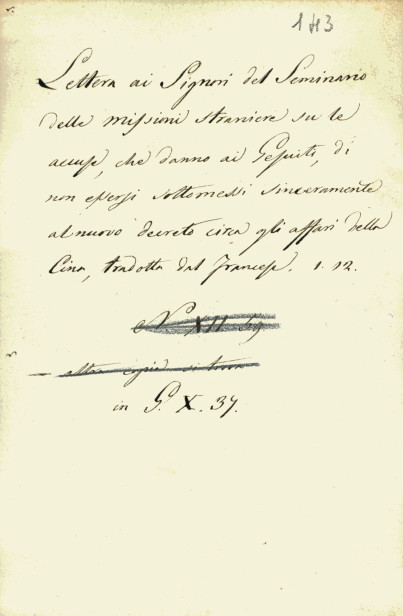 143
Lettera ai Signori del Seminario
delle missioni straniere su le
accuse, che danno ai Gesuiti, di
non essersi sottomessi sinceramente
al nuovo decreto circa gli affari della
Cina, tradotta dal Francese. 1. 12.
N XII
altra copia si trova
in G. X. 37.